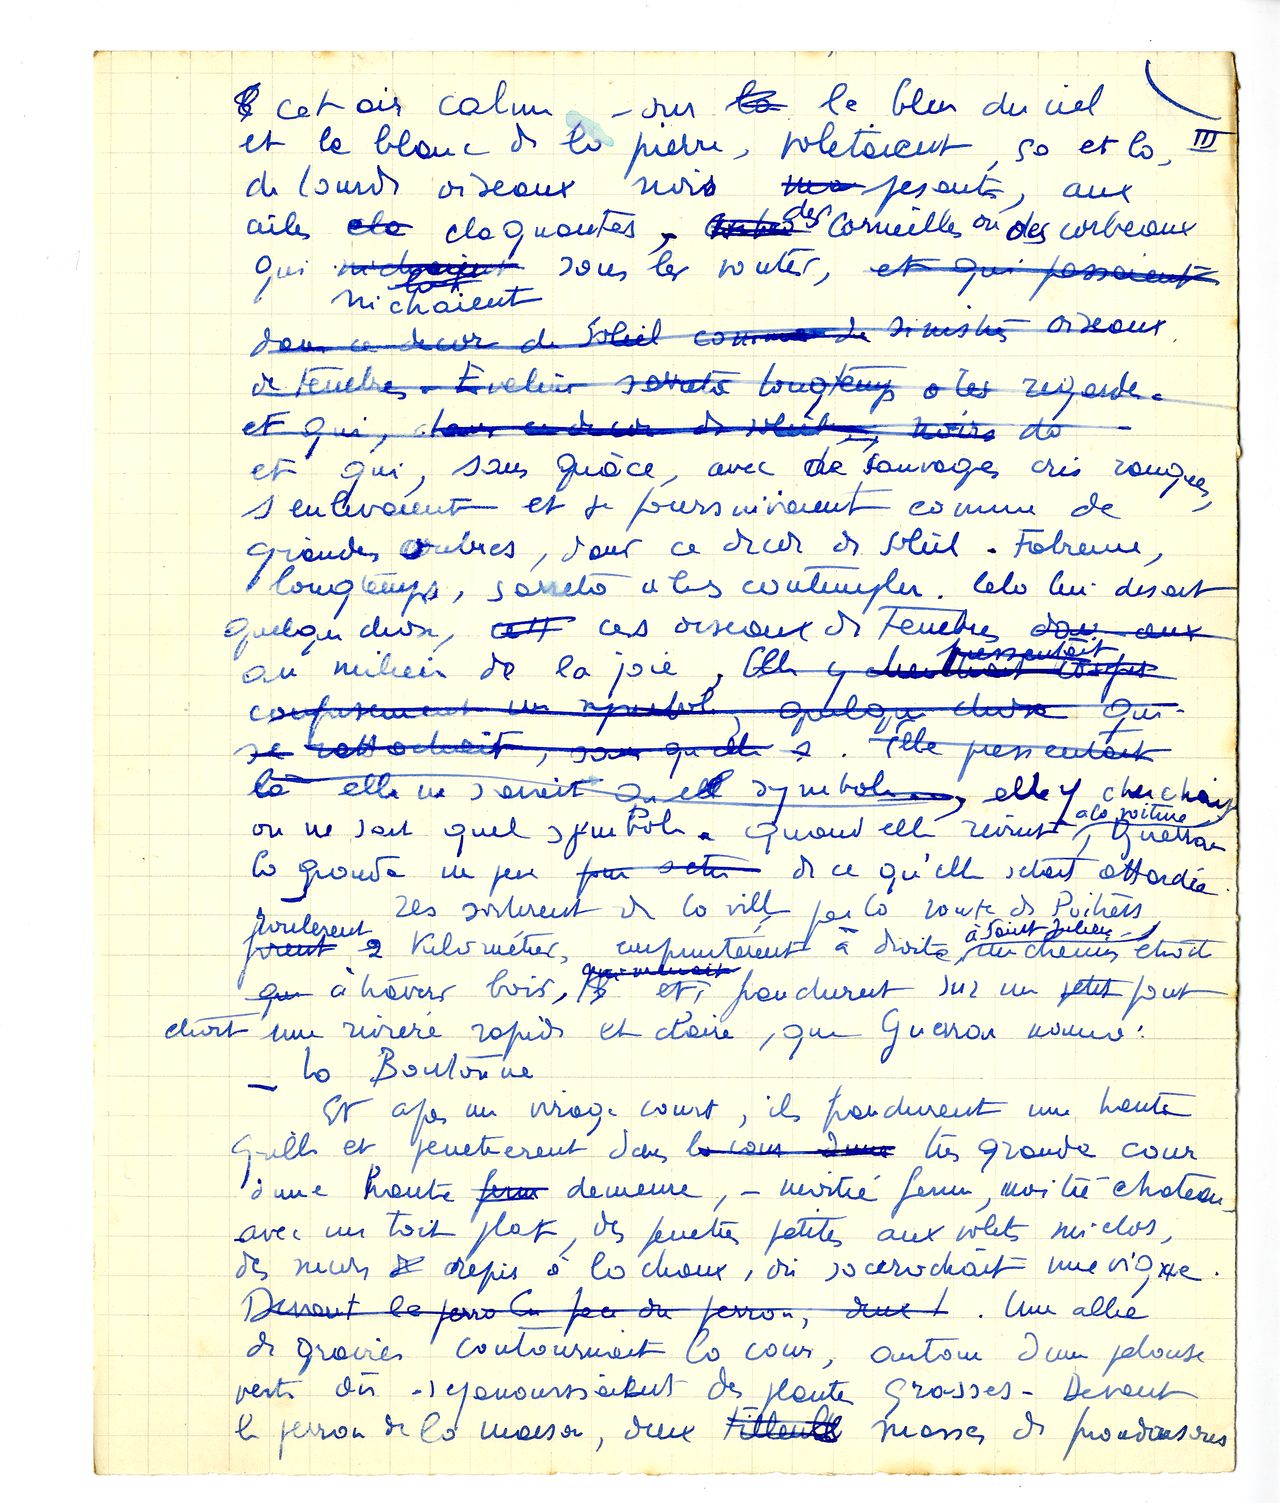 & cet air calme – sur la le bleu du ciel
et le blanc de la pierre, voletaient, ça et là, III
de lourds oiseaux noirs pesants, aux
ailes cla claquantes, – des Corneilles ou des corbeaux
qui nichaient sous les voutes, et qui passaient
nichaient
dans ce decor de Soleil comme de sinistres oiseaux
de tenebres. Eveline s'arreta longtemps a les regarder
et qui, dans ce decor de soleil, noirs da –
et qui, sans grâce, avec de sauvages cris rauques,
s'enlevaient et se poursuivaient comme de
grandes ombres, dans ce decor de soleil. Fabienne,
longtemps, s'arreta a les contempler. Cela lui disait
quelque chose, cett ces oiseaux de Tenebres dans aux
au milieu de la joie, Elle y cherchait
pressentait
confusement un symbole, quelque chose qui
se rattachait, sans qu'elle s. Elle pressentait
là elle ne savait quel symbole, elle y cherchait
on ne sait quel symbole. quand elle revint, Guerran
a la voiture
la gronda un peu de ce qu'elle s'etait attardée.
Ils sortirent de la ville, par la route de Poitiers
roulerent
firent 2 Kilomètres, empruntèrent à droite, un chemin etroit
à Saint Julien
qui à travers bois, et, franchirent sur un petit pont
qui menait
etroit une riviere rapide et claire, que Guerran nomma :
– La Boutonne
Et apres un virage court, ils franchirent une haute
Grille et penetrerent dans la cour d'une tres grande cour
d'une haute ferm demeure, – moitié ferme, moitié chateau,
avec un toit plat, des fenetres petites aux volets mi-clos,
des murs crepis à la chaux, où s'accrochait une vigne.
Devant le perro Un peu du perron, deux t. Une allée
de graviers contournait la cour, autour d'une pelouse
verte où s'epanouissaient des plantes grasses – Devant
le perron de la maison, deux Tilleuls masses de frondaisons